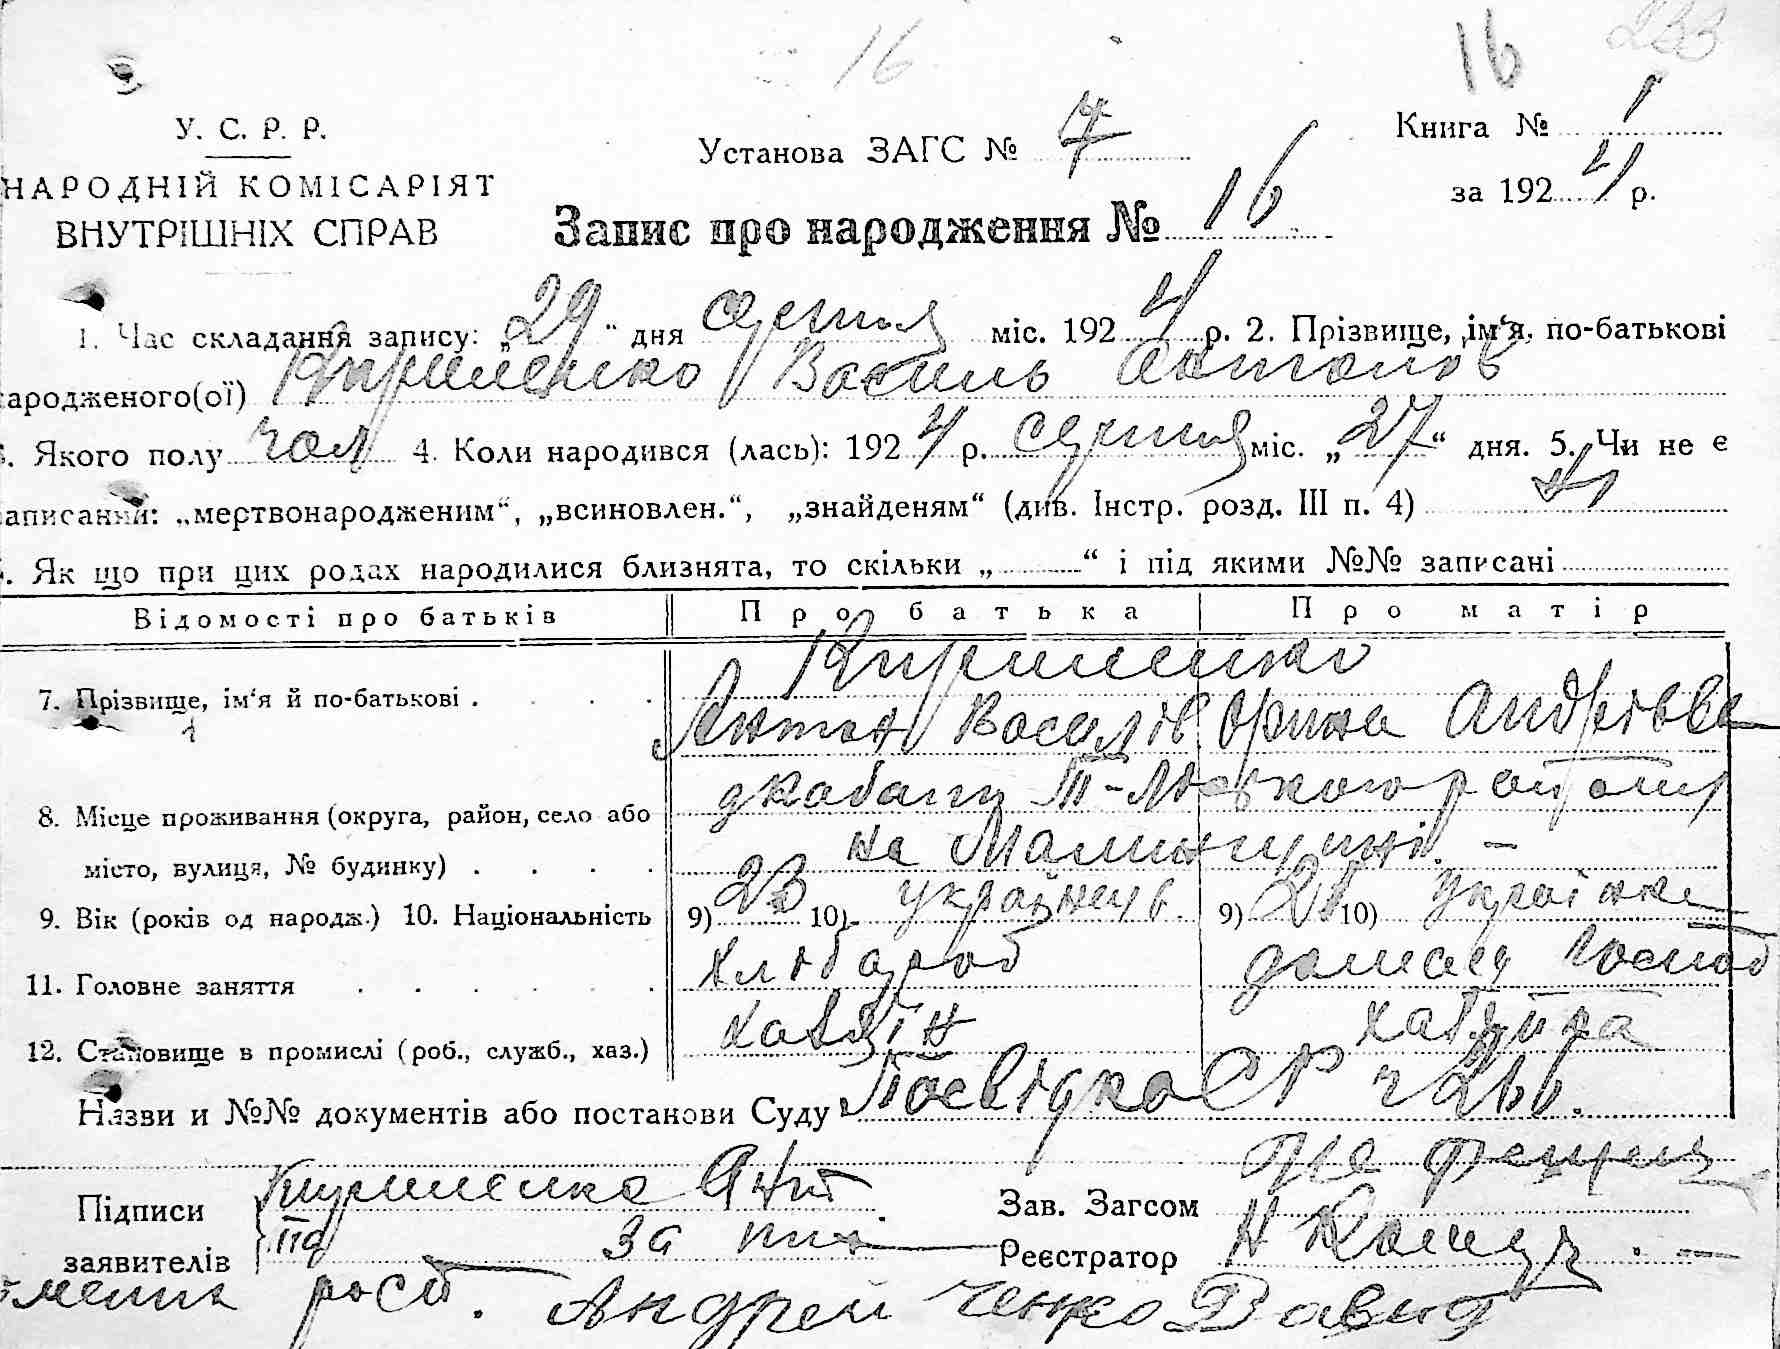 16 16 233
У. С. Р. Р.
НАРОДНІЙ КОМІСАРІЯТ
ВНУТРІШНІХ СПРАВ
Установа ЗАГС № 7
Книга № 1
за 1924 р.
Запис про народження № 16
1. Час складання запису: „29“ дня серпня міс. 1924 р. 2. Прізвище, ім‘я, по-батькові
ародженого(ої) Кириленко Василь Антонов
3. Якого полу чол 4. Коли народився (лась): 1924 р. серпня міс. „27“ дня. 5. Чи не є
аписаний: „мертвонародженим“, „всиновлен.“, „знайденям“ (див. Інстр. розд. III п. 4) ні
. Як що при цих родах народилися близнята, то скільки „ “ і під якими №№ записані
Відомості про батьків Про батька Про матір
Кириленко
7. Прізвище, ім‘я й по-батькові . . . . Антон Василів Орина Андріівна
8. Місце проживання (округа, район, село або
місто, вулиця, № будинку) . . . . на
9. Вік (років од народж.) 10. Національність 9) 23 10) українець 9) 10) українка
11. Головне заняття . . . . . . хлібороб домаш господ
12. Становище в промислі (роб., служб., хаз.) хазяїн хазяйка
Назви и №№ документів або постанови Суду Посвідка СР ч 266.
Підписи
заявителів
Кириленко Ант
за
Зав. Загсом
Реєстратор Н
рост. Андрейченко Давид